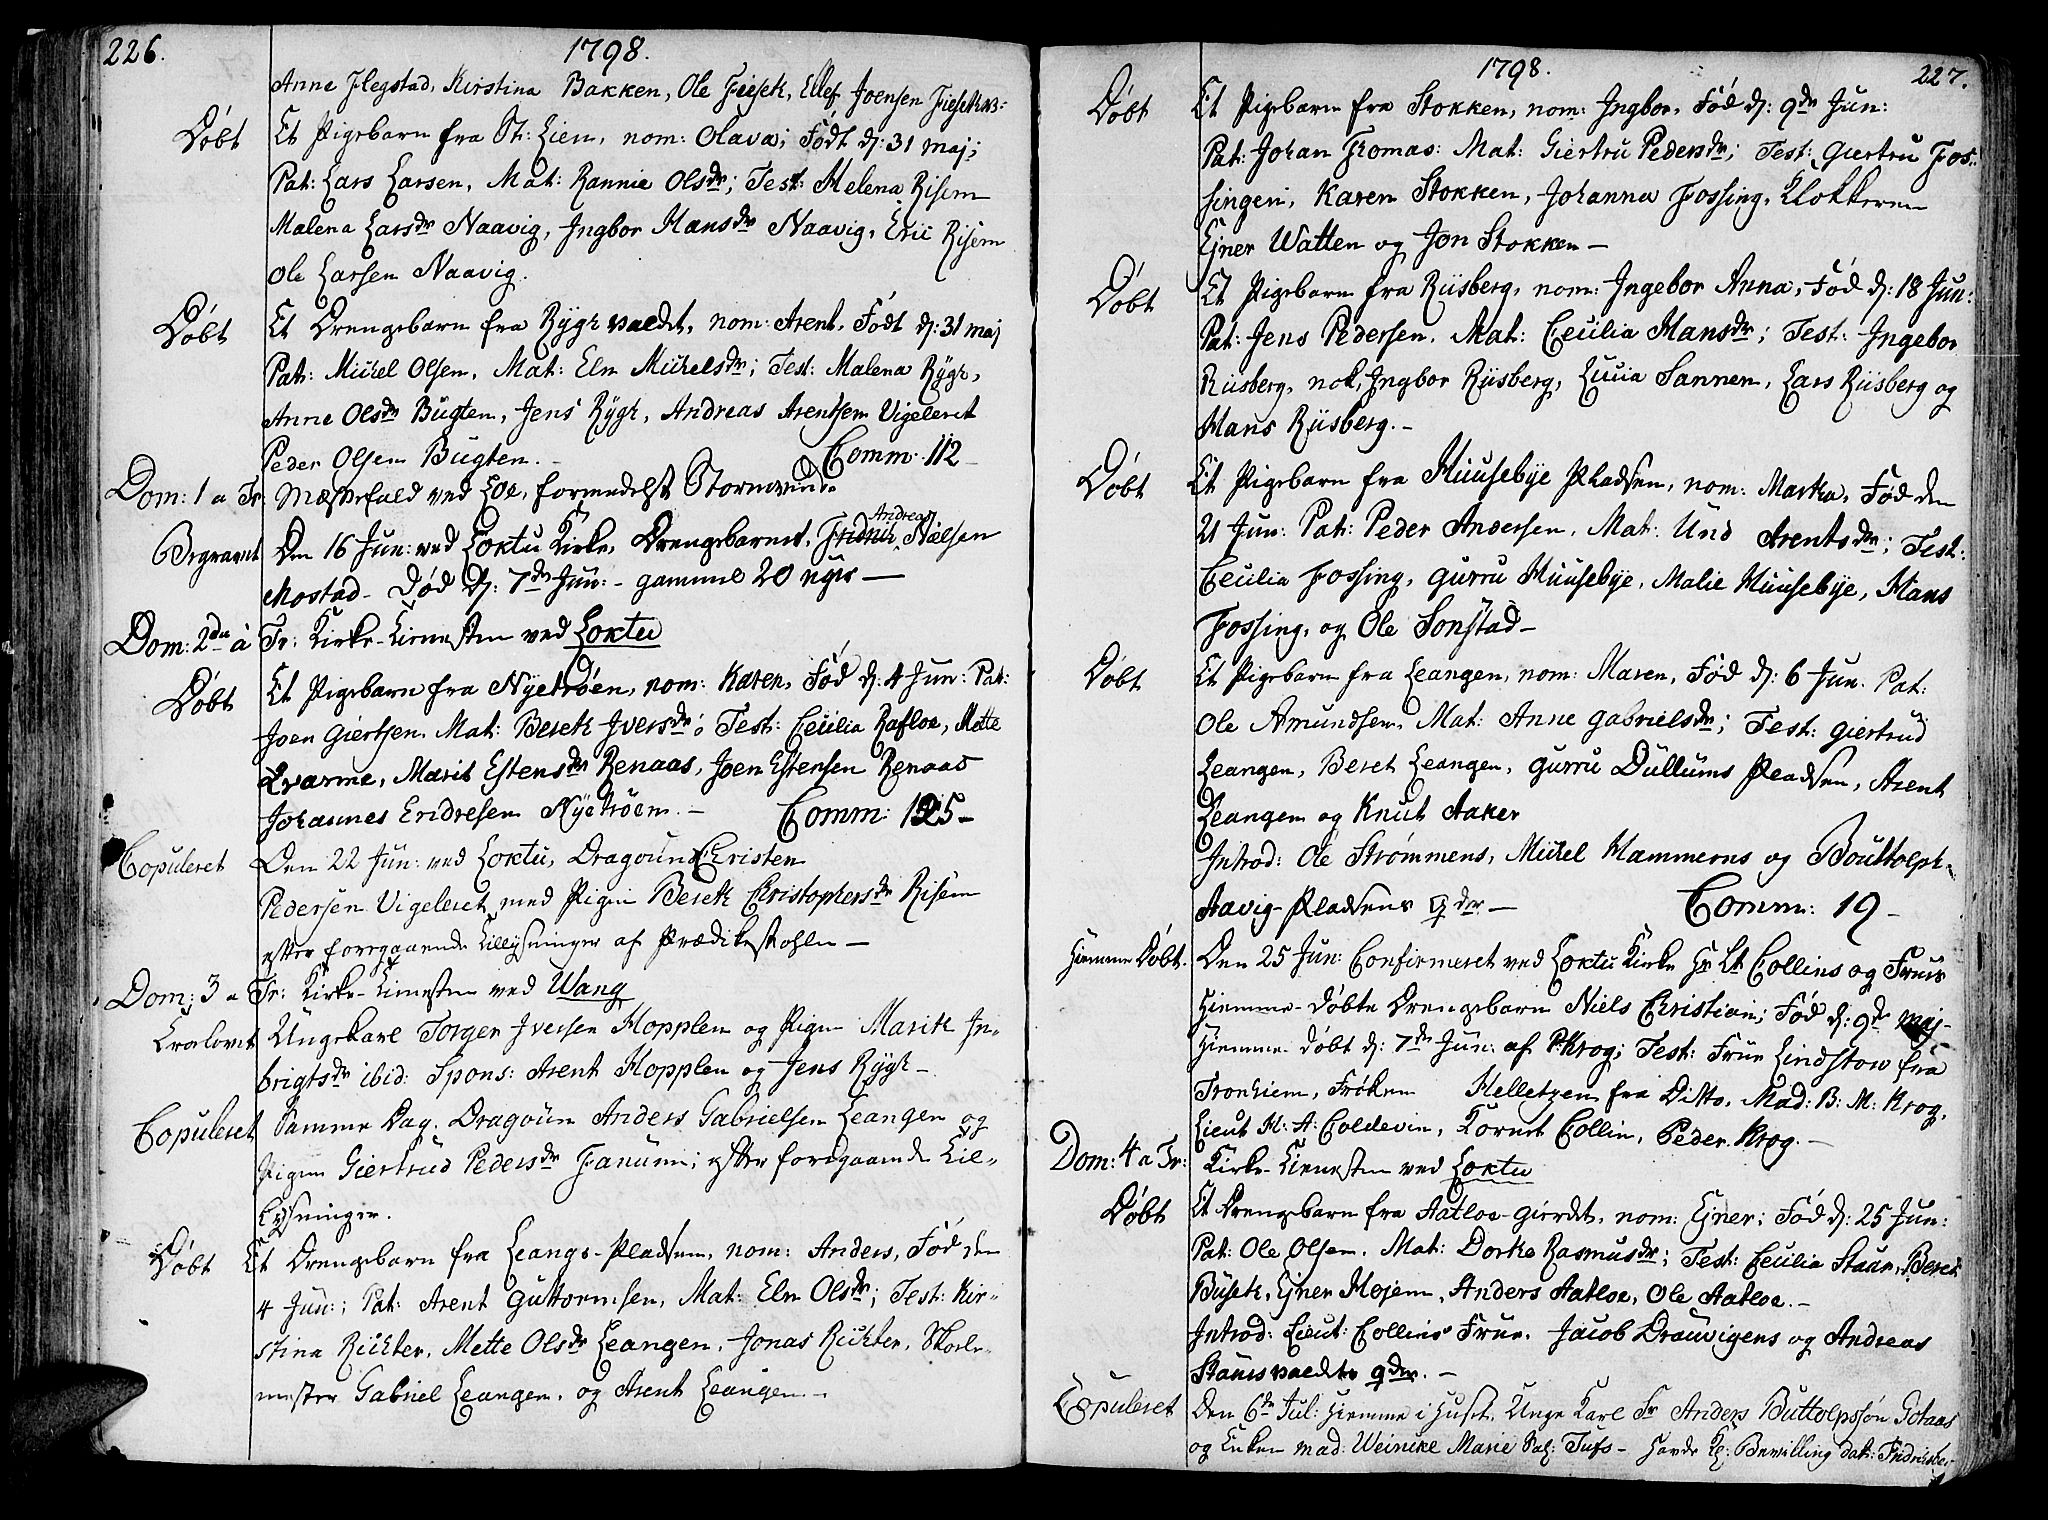 226.
1798.
Anne Flegstad, Kirstina Bakken, Ole Fiesek, Ellef Joensen
Døbt Et Pigebarn fra St: Lien, nom: Olava; Født d: 31 maj;
Pat: Lars Larsen, Mat: Rannie Olsdr; Test: Helena Risem
Malena Larsdr Naavig, Ingbor Hansdr Naavig, Eric Risem
Ole Larsen Naavig.
Døbt Et Drengebarn fra Rygh valdet, nom: Arent, Født d: 31 maj
Pat: Michel Olsen, Mat: Eln Michelsdr; Test: Malena Rygh,
Anne Olsdr Bugten, Jens Rygh, Andreas Arentsen Vigeleret
Peder Olsen Bugten. – Comm: 112
Dom: 1 a Tr Messefald ved Loe, formedelst Stormvind
Begravet Den 16 Jun: ved Loxtu Kirke, Drengebarnet, Fridrich Andreas Nielsen
Mostad – Død d: 7de Jun: – gammel 20 uger —
Dom: 2den à Tr: Kirke-Tienesten ved Loxtu
Døbt Et Pigebarn fra Nyetrøen, nom: Karen, Fød d: 4 Jun: Pat:
Joen Giertsen. Mat: Bereth Iversdr; Test: Cecilia Rafloe, Mette
Qvarme, Marit Estensdr Renaas, Joen Estensen Renaas
Johannes Endresen Nyetrøen. – Comm: 125 –
Copuleret Den 22 Jun: ved Loxtu, Dragoun Christen
Pedersen Vigeleret med Pigen Bereth Christophersdr Risem
efter foregaaende Tillysninger af Prædikestohlen —
Dom: 3 a Tr: Kirke-Tienesten ved Wang
Troelovet Ungekarl Torger Iversen Hopplen og Pigen Marith In-
brigtsdr ibid: Spons: Arent Hopplen og Jens Rygh –
Copuleret Samme Dag. Dragoun Anders Gabrielsen Leangen og
Pigen Giertrud Pedersdr Fanum; efter foregaaende Til-
lysninger.
Døbt Et Drengebarn fra Leangs-Pladsen, nom: Anders, Fød den
4 Jun:; Pat: Arent Guttormsen, Mat: Eln Olsdr; Test: Kir-
stina Richter, Mette Olsdr Leangen, Jonas Richter, Skole-
mester Gabriel Leangen, og Arent Leangen. –
1798.
227.
Døbt Et Pigebarn fra Stokken, nom: Ingbor, Fød d: 9de Jun:
Pat: Johan Thomas: Mat: Giertru Pedersdr; Test: Giertru Fos-
singen, Karen Stokken, Johanna Fossing, Klokkeren
Ejner Watten og Jon Stokken –
Døbt Et Pigebarn fra Riisberg, nom: Ingebor Anna, Fød d: 18 Jun:
Pat: Jens Pedersen, Mat: Cecilia Hansdr; Test: Ingebor
Riisberg, nok, Ingbor Riisberg, Lucia Sannen, Lars Riisberg og
Hans Riisberg. –
Døbt Et Pigebarn fra Huusebye Pladsen, nom: Martha, Fød den
21 Jun: Pat: Peder Andersen, Mat: Und Arentsdr; Test:
Cecilia Fossing, Gurru Huusebye, Malie Huusebye, Hans
Fossing, og Ole Sonstad –
Døbt Et Pigebarn fra Leangen, nom: Maren, Fød d: 6 Jun. Pat:
Ole Amundsen, Mat: Anne Gabrielsdr; Test: Giertrud
Leangen, Beret Leangen, Gurru Dullums Pladsen, Arent
Leangen og Knut Aaker
Introd: Ole Strømmens, Michel Hammerns og Bouttolph
Aavig-Pladsens qder — Comm: 19 –
Hiemme Døbt. Den 25 Jun: Confirmeret ved Loxtu Kirke Hr Lt Collins og Frues
Hiemme-døbte Drengebarn Niels Christian; Fød d: 9de maj –
Hiemme døbt d: 7de Jun: af P. Krog; Test: Frue Lindstow fra
Tronhiem, Frøken Helletzen fra Ditto, Mad: B: M: Krog,
Lieut H: A: Coldevin, Kornet Collin, Peder Krog. –
Dom: 4 a Tr: Kirke-Tienesten ved Loxtu
Døbt Et Drengebarn fra Aatloe-Gierdet, nom: Ejner; Fød d: 25 Jun:
Pat: Ole Olsen. Mat: Dorthe Rasmusdr; Test: Cecilia Staur, Beret
Buseth, Ejner Hojem, Anders Aatloe, Ole Aatloe. –
Introd: Lieut: Collins Frue, Jacob Drauvigens og Andreas
Staursvaldets qder. –
Copuleret Den 6te Jul: Hiemme i Huset, Unge Karl Sr Anders Buttolpssøn Gotaas
og Enken mad: Weincke Marie Sal: Tufs – Havde Kl: Bevilling dat: